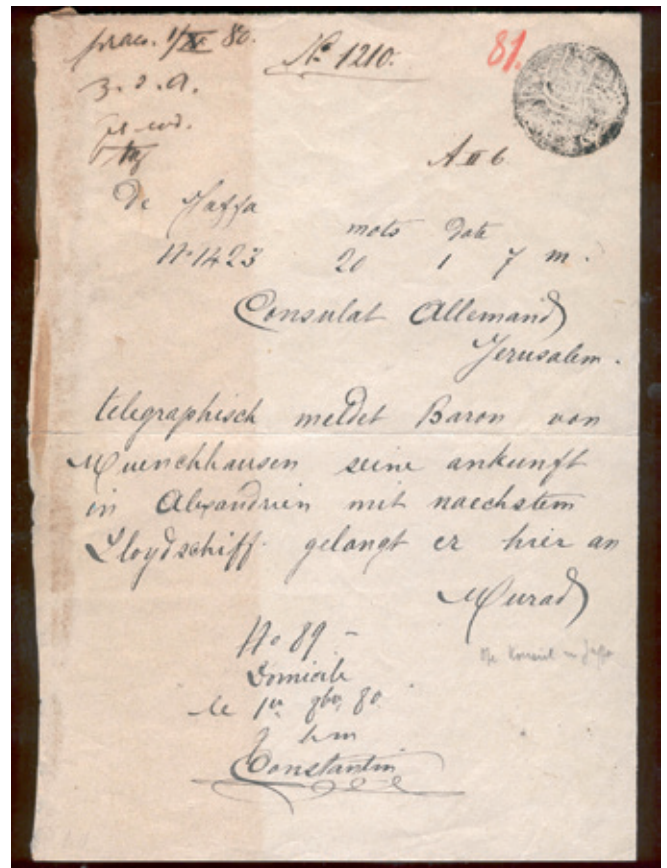 praes. 1/XI 80.
No 1210.
81.
z. d. A.
A II 6
De Jaffa
mots date
No 1423 20 1 7 m.
Consulat Allemand
Jerusalem.
telegraphisch meldet Baron von
Muenchhausen seine ankunft
in Alexandrien mit naechstem
Lloydschiff gelangt er hier an
Murad
No 89 -
Domicile
le 1er 9bre 80
Constantin